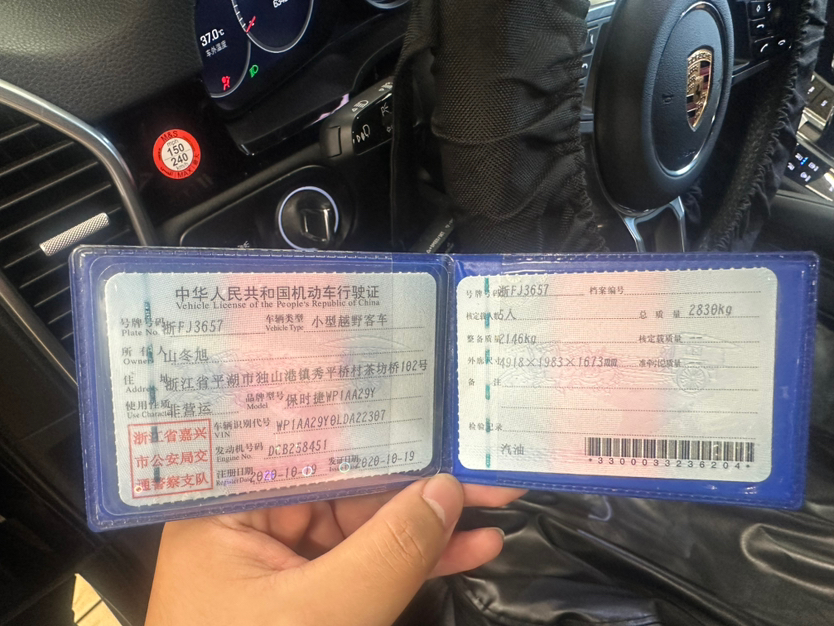 37.0℃
车外温度
M&S
150
240
MAX
中华人民共和国机动车行驶证
Vehicle License of the People's Republic of China
号牌号码 浙FJ3657 车辆类型 小型越野客车
Plate No. Vehicle Type
所有人 山冬旭
Owner
住址 浙江省平湖市独山港镇秀平桥村茶坊桥102号
使用性质 非营运 品牌型号 保时捷WP1AA29Y
Use Character Model
浙江省嘉兴
市公安局交
通警察支队
车辆识别代号 WP1AA29Y0LDA22307
VIN
发动机号码 DCB258451
Engine No.
注册日期 2020-10-19 发证日期 2020-10-19
Register Date Issue Date
号牌号码 浙FJ3657 档案编号
核定载人数 5人 总质量 2830kg
整备质量 2146kg 核定载质量 --
外廓尺寸 4918×1983×1673mm 准牵引总质量
备注
检验记录
汽油
*3300033236204*